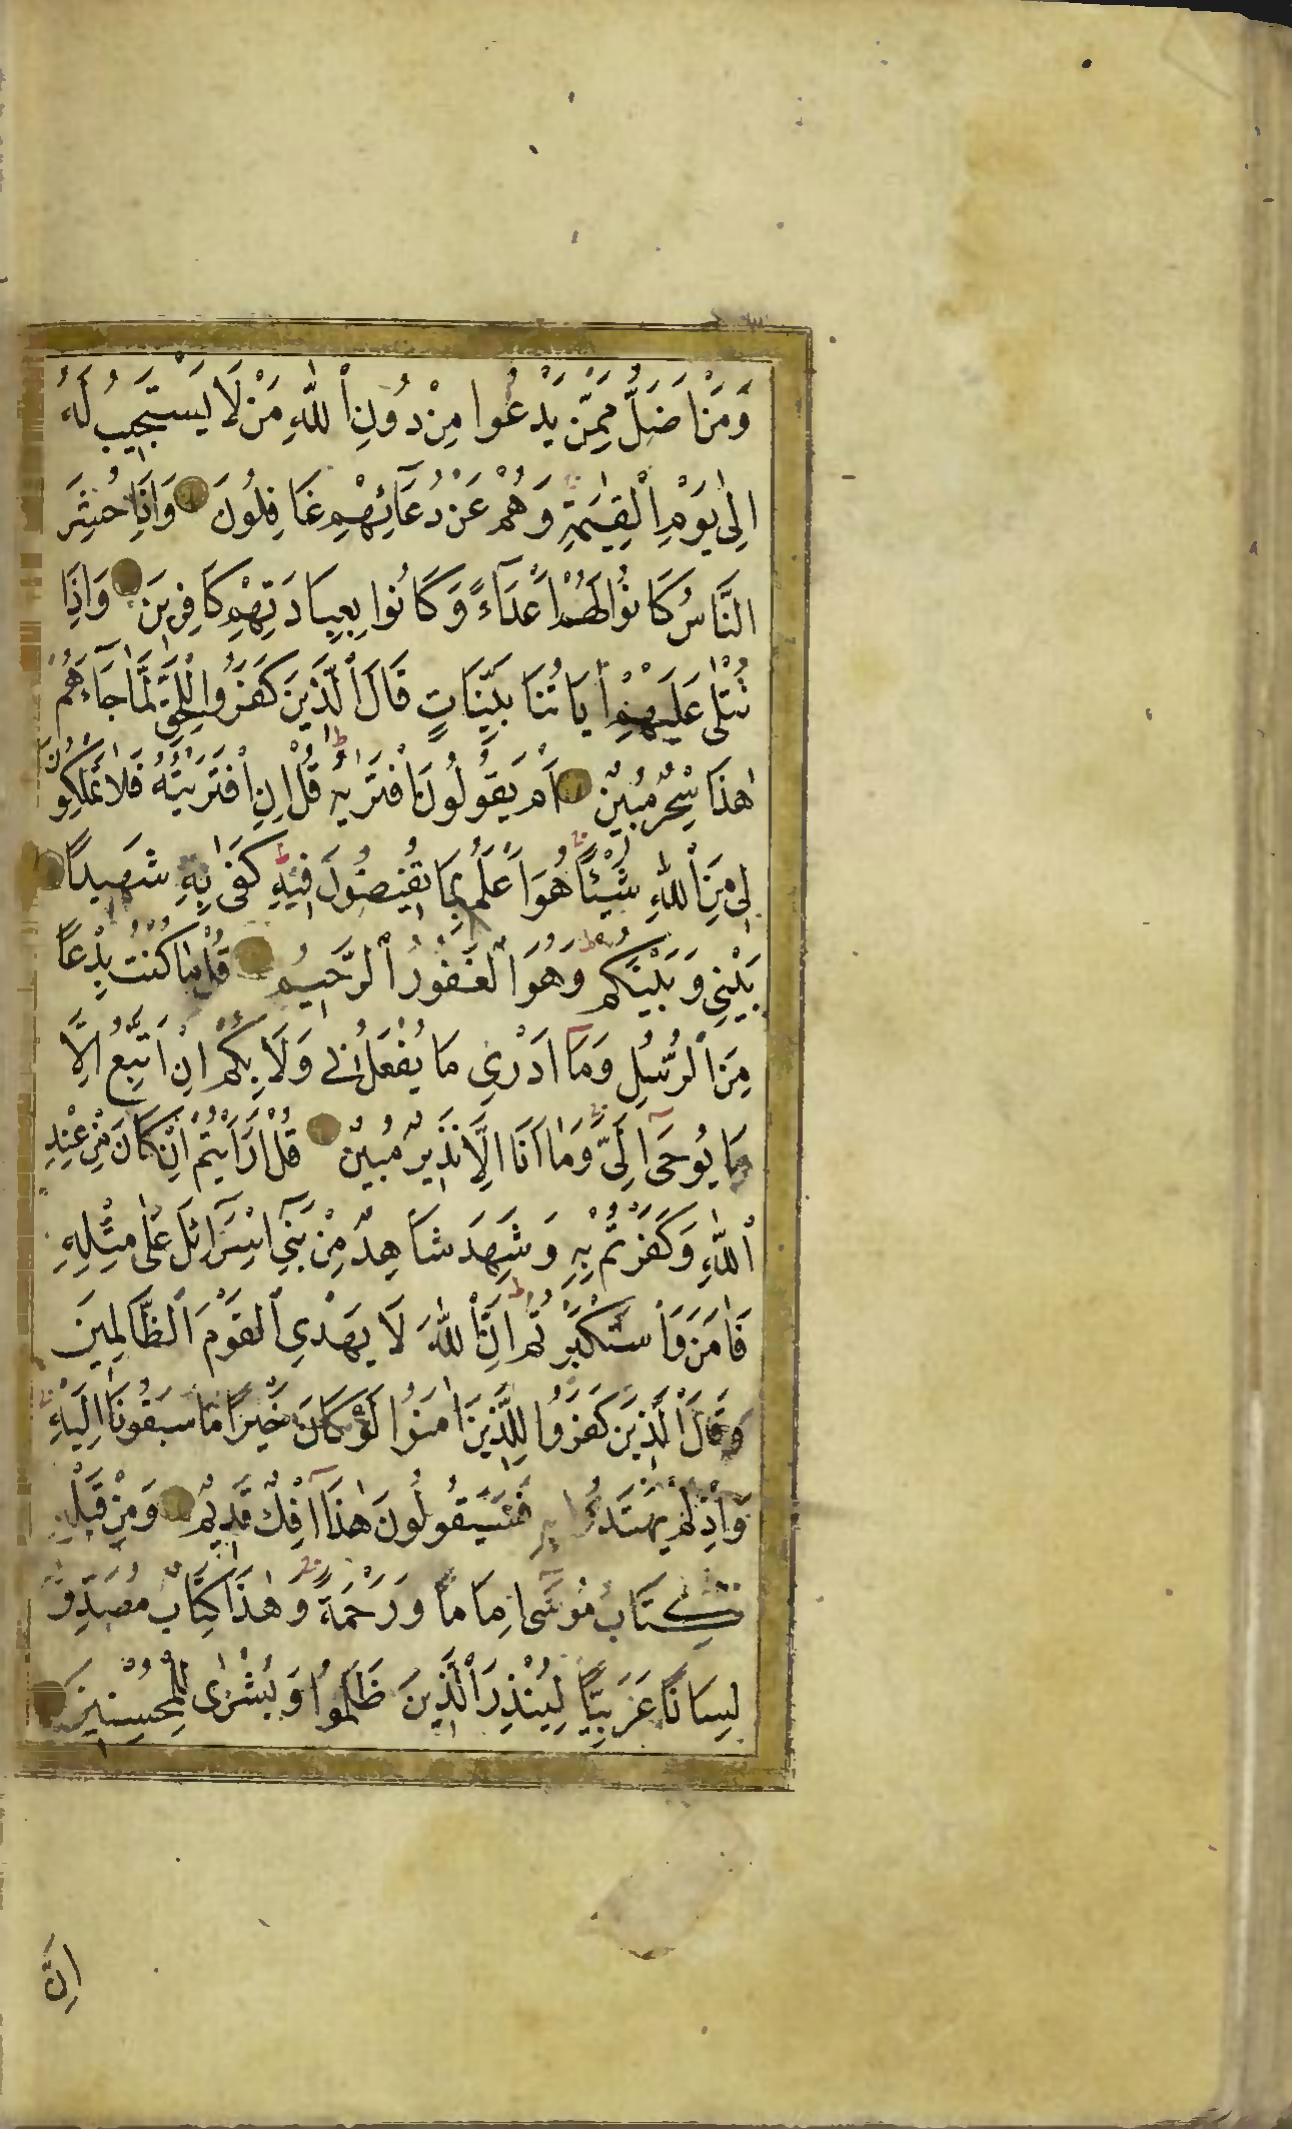 وَمَنْ اَضَلُّ مِمَّنْ يَدْعُوا مِنْ دُونِ اللّٰهِ مَنْ لَا يَسْتَجِيبُ لَهُ
اِلٰى يَوْمِ الْقِيٰمَةِ وَهُمْ عَنْ دُعَآئِهِمْ غَافِلُونَ وَاِذَا حُشِرَ
النَّاسُ كَانُوا لَهُمْ اَعْدَآءً وَكَانُوا بِعِبَادَتِهِمْ كَافِرِينَ وَاِذَا
تُتْلٰى عَلَيْهِمْ اٰيَاتُنَا بَيِّنَاتٍ قَالَ الَّذِينَ كَفَرُوا لِلْحَقِّ لَمَّا جَآءَهُمْ
هٰذَا سِحْرٌ مُبِينٌ اَمْ يَقُولُونَ افْتَرٰيهُ قُلْ اِنِ افْتَرَيْتُهُ فَلَا تَمْلِكُونَ
لِي مِنَ اللّٰهِ شَيْئًا هُوَ اَعْلَمُ بِمَا تُفِيضُونَ فِيهِ كَفٰى بِهِ شَهِيدًا
بَيْنِي وَبَيْنَكُمْ وَهُوَ الْغَفُورُ الرَّحِيمُ قُلْ مَا كُنْتُ بِدْعًا
مِنَ الرُّسُلِ وَمَآ اَدْرِي مَا يُفْعَلُ بِي وَلَا بِكُمْ اِنْ اَتَّبِعُ اِلَّا
مَا يُوحٰٓى اِلَيَّ وَمَآ اَنَا اِلَّا نَذِيرٌ مُبِينٌ قُلْ اَرَاَيْتُمْ اِنْ كَانَ مِنْ عِنْدِ
اللّٰهِ وَكَفَرْتُمْ بِهِ وَشَهِدَ شَاهِدٌ مِنْ بَنِيٓ اِسْرَآئِلَ عَلٰى مِثْلِهِ
فَاٰمَنَ وَاسْتَكْبَرْتُمْ اِنَّ اللّٰهَ لَا يَهْدِي الْقَوْمَ الظَّالِمِينَ
وَقَالَ الَّذِينَ كَفَرُوا لِلَّذِينَ اٰمَنُوا لَوْ كَانَ خَيْرًا مَا سَبَقُونَآ اِلَيْهِ
وَاِذْ لَمْ يَهْتَدُوا بِهِ فَسَيَقُولُونَ هٰذَآ اِفْكٌ قَدِيمٌ وَمِنْ قَبْلِهِ
كِتَابُ مُوسٰٓى اِمَامًا وَرَحْمَةً وَهٰذَا كِتَابٌ مُصَدِّقٌ
لِسَانًا عَرَبِيًّا لِيُنْذِرَ الَّذِينَ ظَلَمُوا وَبُشْرٰى لِلْمُحْسِنِينَ
اِنَّ